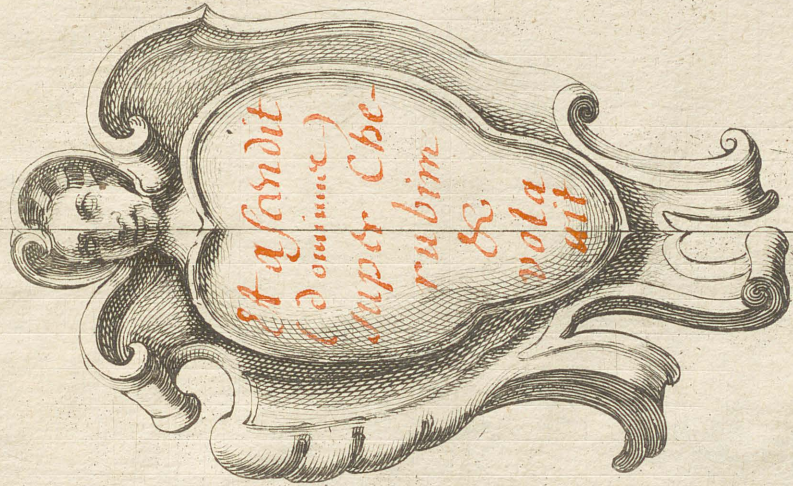 Et aſcendit
(dominus)
super Che-
rubim
&
vola
uit